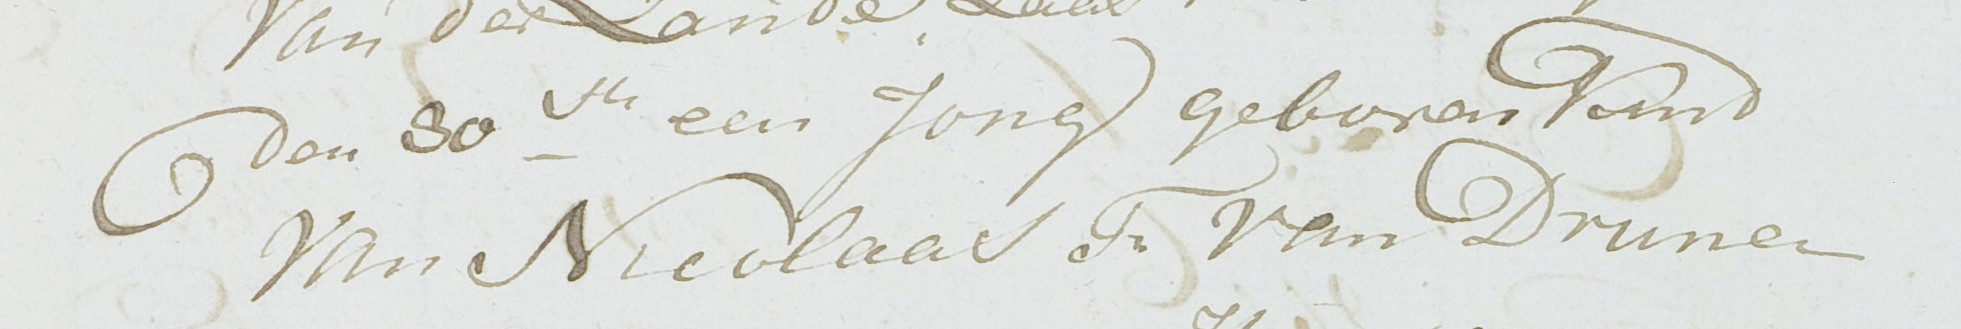 Van der Lande
Den 30ste een Jong geboren Kind
Van Nicolaas Fr Van Drunen